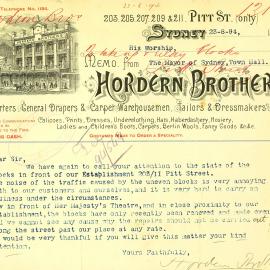 23-8-94
TELEPHONE No. 1184.
203, 205, 207, 209 & 211 PITT ST. only
SYDNEY
23-8-94,
His Worship,
MEMO. FROM The Mayor of Sydney, Town Hall.
HORDERN BROTHERS
General Drapers & Carpet Warehousemen, Tailors & Dressmakers
Calicoes, Prints, Dresses, Underclothing, Hats, Haberdashery, Hosiery,
Ladies and Children's Boots, Carpets, Berlin Wools, Fancy Goods &c.
COSTUMES MADE TO ORDER A SPECIALITY.
CASH.
Dear Sir,
We have again to call your attention to the state of the
blocks in front of our Establishment 203/11 Pitt Street.
The noise of the traffic caused by the uneven blocks is very annoying
both to our customers and ourselves, and it is very hard to carry on
business under the circumstances.
in front of Her Majesty's Theatre, and in close proximity to our
Establishment, the blocks have only recently been renewed and made even
we cannot see any cause why the repairs should not be carried out
along the street past our place at any rate.
We would be very thankful if you will give this matter your kind
attention.
Yours Faithfully,
Hordern Bros